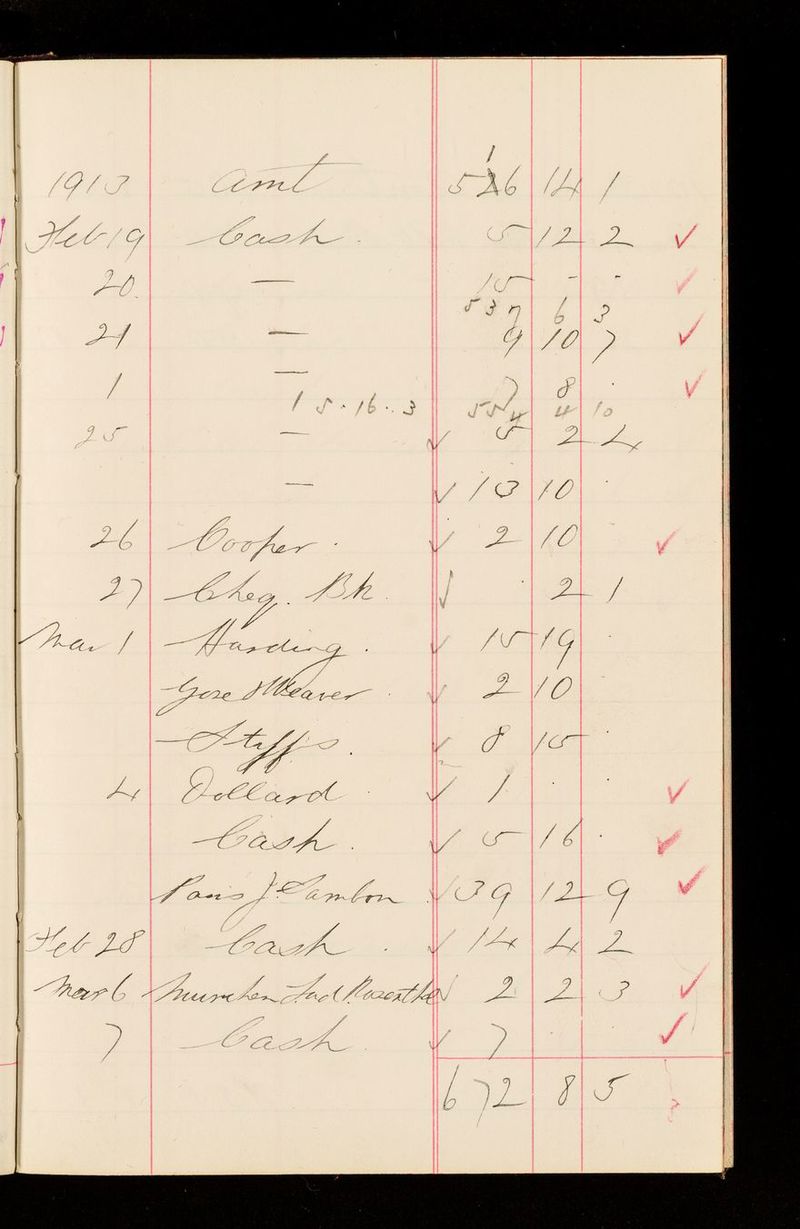 1913 Amt 516 14 1
Feb 19 Cash. 5 12 2 ✓
20. — 15 - - ✓
537 6 3
21 — 9 10 7 ✓
1 — 7 8 . ✓
15.16..3 554 4 10
25 — ✓ 5 2 4
— ✓ 13 10 .
26 Cooper. ✓ 2 10 ✓
27 Cheq. Bk. ✓ . 2 1
Mar 1 Harding. ✓ 15 19 .
✓ 2 10 .
Staffs. ✓ 8 15 .
4 Dollard ✓ 1 . . ✓
Cash. ✓ 5 16 . ✓
Paris ✓ 39 12 9 ✓
Feb 28 Cash. ✓ 14 4 2
Mar 6 Munchen Rosenthal ✓ 2 2 3 ✓
7 Cash. ✓ 7 . . ✓
672 8 5